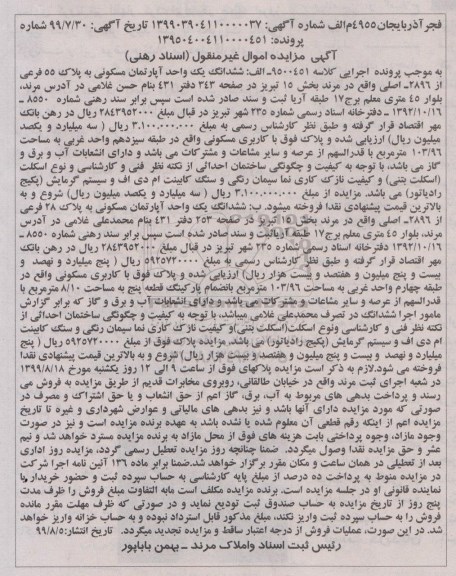 فجر آذربایجان ۴۹۵۵م/الف شماره آگهی: ۱۳۹۹۰۳۹۰۴۱۱۰۰۰۰۰۳۷ تاریخ آگهی: ۹۹/۷/۳۰ شماره
پرونده: ۱۳۹۵۰۴۰۰۴۱۱۰۰۰۴۵۱
آگهی مزایده اموال غیرمنقول (اسناد رهنی)
به موجب پرونده اجرایی کلاسه ۹۵۰۰۴۵۱ـ الف: ششدانگ یک واحد آپارتمان مسکونی به پلاک ۵۵ فرعی
از ۲۸۹۶ـ اصلی واقع در مرند بخش ۱۵ تبریز در صفحه ۳۴۳ دفتر ۴۳۱ بنام حسن غلامی در آدرس مرند،
بلوار ۴۵ متری معلم برج ۱۷ طبقه آریا ثبت و سند صادر شده است سپس برابر سند رهنی شماره ۸۵۵۰ ـ
۱۳۹۲/۱۰/۱۶ ـ دفترخانه اسناد رسمی شماره ۲۳۵ شهر تبریز در قبال مبلغ ۲۸۴۳۹۵۲۰۰۰ ریال در رهن بانک
مهر اقتصاد قرار گرفته و طبق نظر کارشناس رسمی به مبلغ ۳.۱۰۰.۰۰۰.۰۰۰ ریال ( سه میلیارد و یکصد
میلیون ریال) ارزیابی شده و پلاک فوق با کاربری مسکونی واقع در طبقه سیزدهم واحد غربی به مساحت
۱۰۳/۹۶ مترمربع با قدرالسهم از عرصه و سایر مشاعات و مشترکات می باشد و دارای انشعابات آب و برق و
گاز می باشد، با توجه به کیفیت و چگونگی ساختمان احداثی از نکته نظر فنی و کارشناسی و نوع اسکلت
(اسکلت بتنی) و کیفیت نازک کاری نما سیمان رنگی و سنگ کابینت ام دی اف و سیستم گرمایش (پکیج
رادیاتور) می باشد. مزایده از مبلغ ۳.۱۰۰.۰۰۰.۰۰۰ ریال ( سه میلیارد و یکصد میلیون ریال) شروع و به
بالاترین قیمت پیشنهادی نقدا فروخته میشود. ب: ششدانگ یک واحد آپارتمان مسکونی به پلاک ۲۸ فرعی
از ۲۸۹۶ـ اصلی واقع در مرند بخش ۱۵ تبریز در صفحه ۲۵۳ دفتر ۴۳۱ بنام محمدعلی غلامی در آدرس
مرند، بلوار ۴۵ متری معلم برج ۱۷ طبقه آریا ثبت و سند صادر شده است سپس برابر سند رهنی شماره ۸۵۵۰ـ
۱۳۹۲/۱۰/۱۶ دفترخانه اسناد رسمی شماره ۲۳۵ شهر تبریز در قبال مبلغ ۲۸۴۳۹۵۲۰۰۰ ریال در رهن بانک
مهر اقتصاد قرار گرفته و طبق نظر کارشناس رسمی به مبلغ ۵۹۲۵۷۲۰۰۰۰ ریال ( پنج میلیارد و نهصد و
بیست و پنج میلیون و هفتصد و بیست هزار ریال) ارزیابی شده و پلاک فوق با کاربری مسکونی واقع در
طبقه چهارم واحد غربی به مساحت ۱۰۳/۹۶ مترمربع بانضمام پارکینگ قطعه پنج به مساحت ۸/۱۰ مترمربع با
قدرالسهم از عرصه و سایر مشاعات و مشترکات می باشد و دارای انشعابات آب و برق و گاز که برابر گزارش
مامور اجرا ششدانگ در تصرف محمدعلی غلامی میباشد، با توجه به کیفیت و چگونگی ساختمان احداثی از
نکته نظر فنی و کارشناسی ونوع اسکلت(اسکلت بتنی)و کیفیت نازک کاری نما سیمان رنگی و سنگ کابینت
ام دی اف و سیستم گرمایش (پکیج رادیاتور) می باشد. مزایده پلاک فوق از مبلغ ۵۹۲۵۷۲۰۰۰۰ ریال (پنج
میلیارد و نهصد و بیست و پنج میلیون و هفتصد وبیست هزار ریال) شروع و به بالاترین قیمت پیشنهادی نقدا
فروخته می شود.لازم به ذکر است مزایده پلاکهای فوق از ساعت ۹ الی ۱۲ روز یکشنبه مورخ ۱۳۹۹/۸/۱۸
در شعبه اجرای ثبت مرند واقع در خیابان طالقانی، روبروی مخابرات قدیم از طریق مزایده به فروش می
رسند و پرداخت بدهی های مربوط به آب، برق، گاز اعم از حق انشعاب و یا حق اشتراک و مصرف در
صورتی که مورد مزایده دارای آنها باشد و نیز بدهی های مالیاتی و عوارض شهرداری و غیره تا تاریخ
مزایده اعم از اینکه رقم قطعی آن معلوم شده یا نشده باشد به عهده برنده مزایده است و نیز در صورت
وجود مازاد، وجوه پرداختی بابت هزینه های فوق از محل مازاد به برنده مزایده مسترد خواهد شد و نیم
عشر و حق مزایده نقدا وصول میگردد. ضمنا چنانچه روز مزایده تعطیل رسمی گردد، مزایده روز اداری
بعد از تعطیلی در همان ساعت و مکان مقرر برگزار خواهد شد.ضمنا برابر ماده ۱۳۶ آئین نامه اجرا شرکت
در مزایده منوط به پرداخت ده درصد از مبلغ پایه کارشناسی به حساب سپرده ثبت و حضور خریدار یا
نماینده قانونی او در جلسه مزایده است. برنده مزایده مکلف است مابه التفاوت مبلغ فروش را ظرف مدت
پنج روز از تاریخ مزایده به حساب صندوق ثبت تودیع نماید و در صورتی که ظرف مهلت مقرر مانده
فروش را به حساب سپرده ثبت واریز نکند، مبلغ مذکور قابل استرداد نبوده و به حساب خزانه واریز خواهد
شد. در این صورت، عملیات فروش از درجه اعتبار ساقط و مزایده تجدید میگردد. تاریخ انتشار:۹۹/۸/۵
رئیس ثبت اسناد واملاک مرند ـ بهمن باباپور